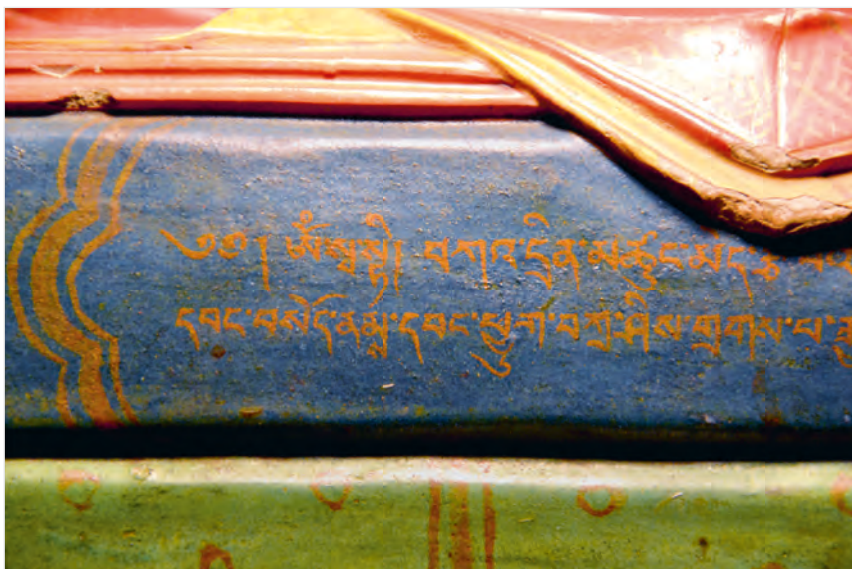 ༄༅། ཨོཾ་སྭ་སྟི། བཀའ་དྲིན་མཚུངས་མེད་རྩ་བའི་
དབང་བསོད་ནམས་དབང་ཕྱུག་བཀྲ་ཤིས་གྲགས་པ་རྒྱ